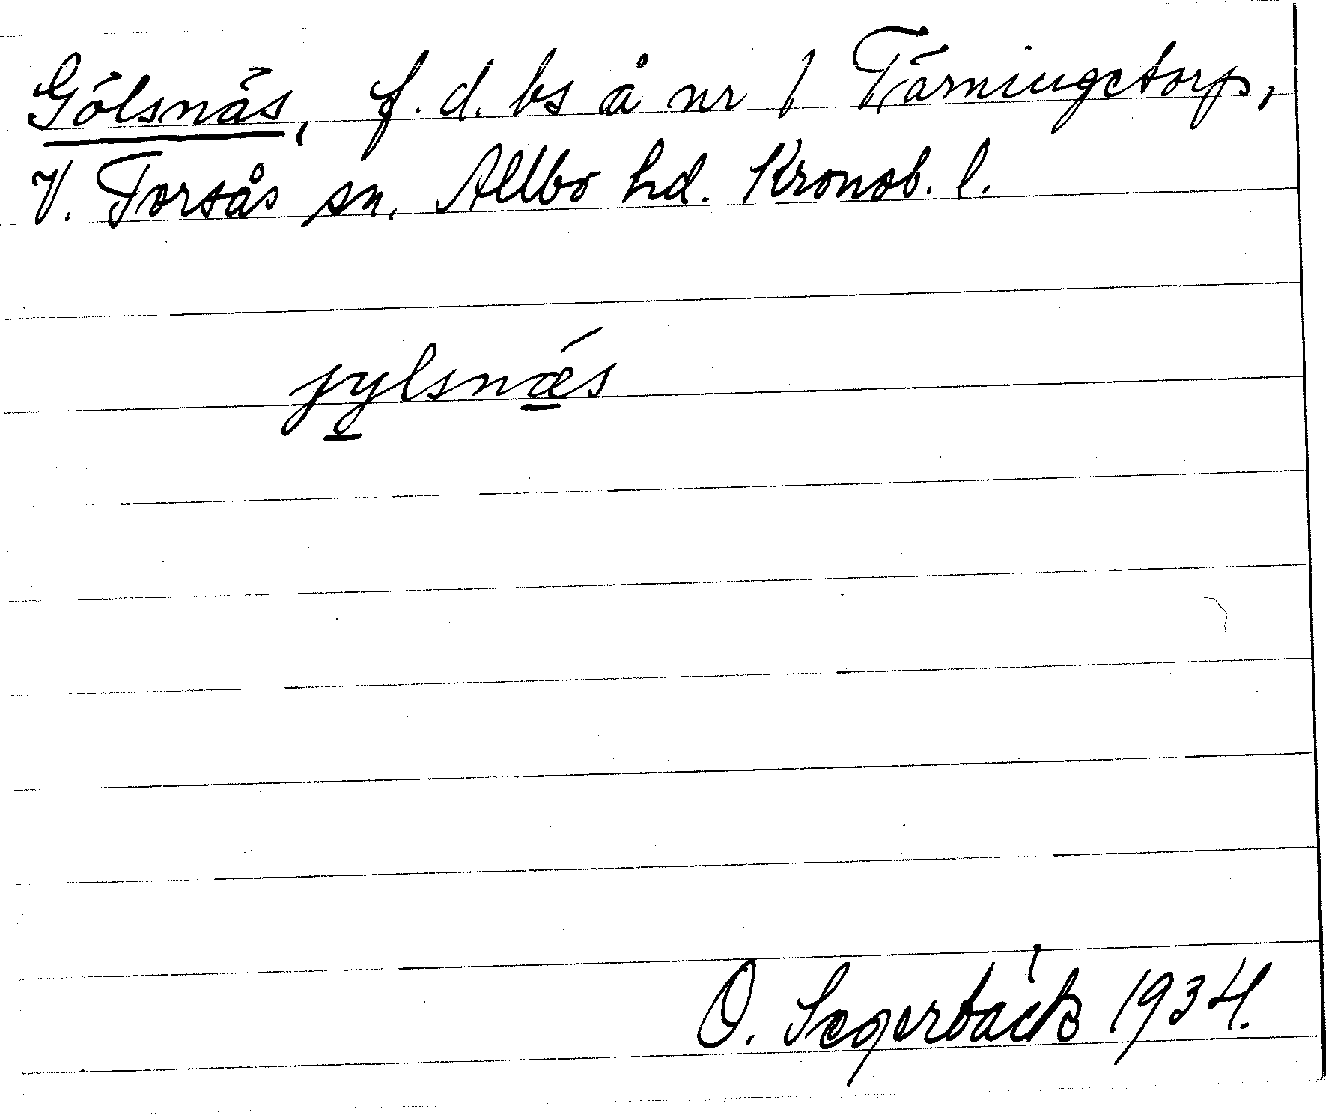 Gölsnäs, f. d. bs å nr 1 Tärningetorp,
V. Torsås sn. Allbo hd. Kronob. l.
jylsnæ´s
O. Segerbäck 1934.